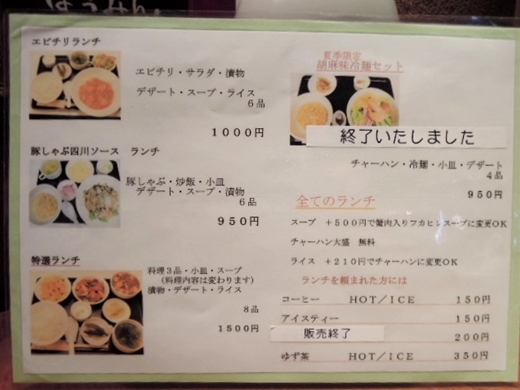 エビチリランチ
エビチリ・サラダ・漬物
デザート・スープ・ライス
6品
1000円
豚しゃぶ四川ソース ランチ
豚しゃぶ・炒飯・小皿
デザート・スープ・漬物
6品
950円
特選ランチ
料理3品・小皿・スープ
(料理内容は変わります)
漬物・デザート・ライス
8品
1500円
夏季限定
胡麻味冷麺セット
終了いたしました
チャーハン・冷麺・小皿・デザート
4品
950円
全てのランチ
スープ +500円で蟹肉入りフカヒレスープに変更OK
チャーハン大盛 無料
ライス +210円でチャーハンに変更OK
ランチを頼まれた方には
コーヒー HOT/ICE 150円
アイスティー 150円
販売終了 200円
ゆず茶 HOT/ICE 350円